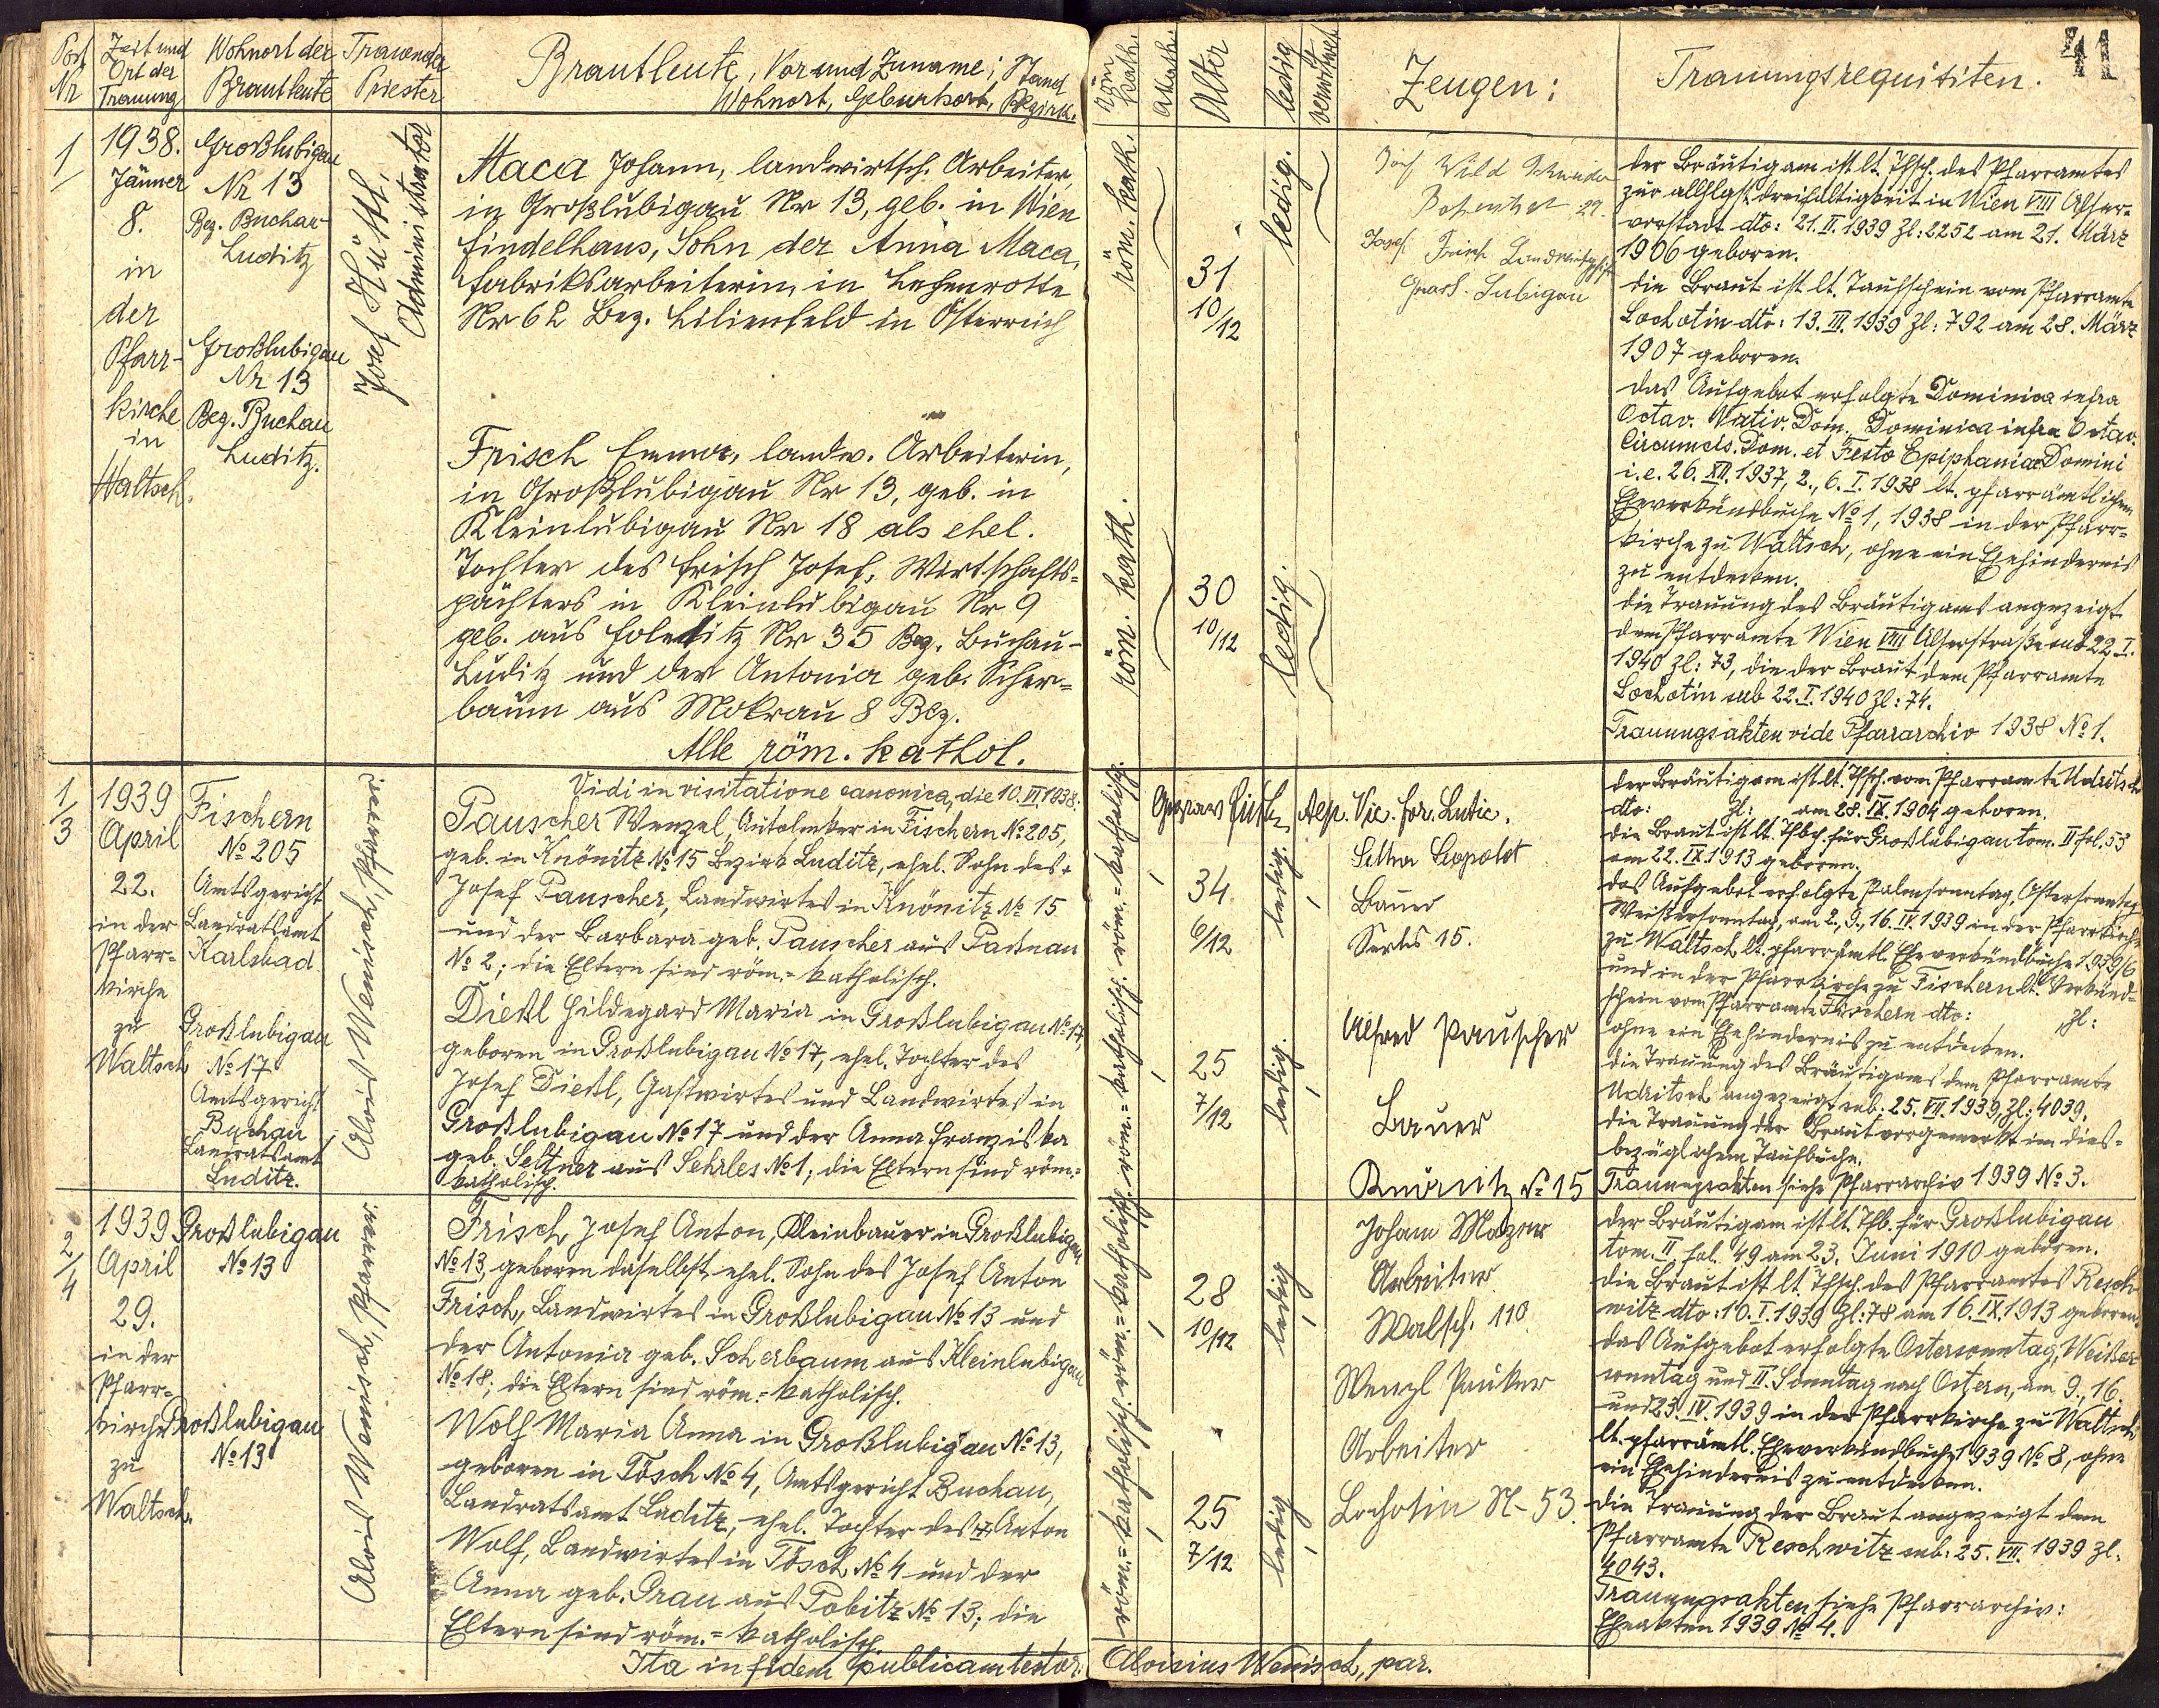 41
Post Nr
Zeit und Ort der Trauung
Wohnort der Brautleute
Trauender Priester
Brautleute, Vor und Zuname; Stand
Wohnort, Geburtsort, Bezirk.
röm. kath.
Alter
ledig
verwitwet
Zeugen:
Trauungsrequisiten.
1
1938.
Jänner
8.
in
der
Pfarr-
kirche
in
Waltsch.
Großlubigau
Nr 13
Bez. Buchau
Luditz
Großlubigau
Nr 13
Bez. Buchau
Luditz.
Josef Hüttl,
Administrator
Maca Johann, landwirtsch. Arbeiter,
in Großlubigau Nr 13, geb. in Wien
Findelhaus, Sohn der Anna Maca,
Fabriksarbeiterin, in Lehenrotte
Nr 62 Bez. Lilienfeld in Österreich
Frisch Emma, landw. Arbeiterin,
in Großlubigau Nr 13, geb. in
Kleinlubigau Nr 18 als ehel.
Tochter des Frisch Josef, Wirtschafts-
pächters in Kleinlubigau Nr 9
geb. aus Nr 35 Bez. Buchau-
Luditz und der Antonia geb. Scher-
baum aus Mokrau 8 Bez.
Alle röm. kathol.
röm. kath.
31
10/12
ledig.
röm. kath.
30
10/12
ledig.
Josef Wild
29.
Josef Frisch
Gross. Lubigau
der Bräutigam ist lt. Tfsch. des Pfarramtes
zur allhlgst. dreifaltigkeit in Wien VIII Alser-
vorstadt dto: 21. II. 1939 Zl: 2252 am 21. März
1906 geboren.
die Braut ist lt. Taufschein vom Pfarramte
Lochotin dto: 13. III. 1939 Zl: 792 am 28. März
1907 geboren.
das Aufgebot erfolgte Dominica infra
Octav. Nativ. Dom., Dominica infra Octav.
Circumcis. Dom. et Festo Epiphaniae Domini
i.e. 26. XII. 1937, 2., 6. I. 1938 lt. pfarrämtlichem
Eheverkündbuche No 1, 1938 in der Pfarr-
kirche zu Waltsch, ohne ein Ehehindernis
zu entdecken.
die Trauung des Bräutigams angezeigt
dem Pfarramte Wien VIII Alserstraße sub 22. I.
1940 Zl: 73, die der Braut dem Pfarramte
Lochotin sub 22. I. 1940 Zl: 74.
Trauungsakten vide Pfarrarchiv 1938 No 1.
Vidi in visitatione canonica, die 10. VI 1938:
Vic. for. Lutic.
1/3
1939
April
22.
in der
Pfarr-
kirche
zu
Waltsch
Fischern
No 205
Amtsgericht
Landratsamt
Karlsbad
Großlubigau
No 17
Amtsgericht
Buchau
Landratsamt
Luditz.
Alois Wenisch, Pfarrer.
Pauscher Wenzel, Autolenker in Fischern No 205,
geb. in Knönitz No 15 Bezirk Luditz, ehel. Sohn des +
Josef Pauscher, Landwirtes in Knönitz No 15
und der Barbara geb. Pauscher aus Paßnau
No 2; die Eltern sind röm.-katholisch.
Dießl Hildegard Maria in Großlubigau No 17,
geboren in Großlubigau No 17, ehel. Tochter des
Josef Dießl, Gastwirtes und Landwirtes in
Großlubigau No 17 und der Anna Franziska
geb. Seltner aus Sehrles No 1; die Eltern sind röm.-
katholisch.
röm.-katholisch.
34
6/12
ledig.
röm.-katholisch.
25
7/12
ledig.
Leopold
Bauer
15.
Alfred Pauscher
Bauer
Knönitz No 15
der Bräutigam ist lt. Tfsch. vom Pfarramte Udritsch
dto: Zl: am 28. IX. 1904 geboren.
die Braut ist lt. Tfbch. für Großlubigau tom. II fol. 53
am 22. IX. 1913 geboren.
das Aufgebot erfolgte Palmsonntag, Ostersonntag
Weißersonntag, am 2., 9., 16. IV. 1939 in der Pfarrkirche
zu Waltsch lt. pfarrämtl. Eheverkündbuche 1939/6
und in der Pfarrkirche zu Fischern lt. Verkünd-
schein vom Pfarramte Fischern dto: Zl:
ohne ein Ehehindernis zu entdecken.
die Trauung des Bräutigams dem Pfarramte
Udritsch angezeigt sub: 25. VII. 1939, Zl: 4039.
die Trauung der Braut vorgemerkt im dies-
bezüglichem Taufbuche.
Trauungsakten siehe Pfarrarchiv 1939 No 3.
2/4
1939
April
29.
in der
Pfarr-
kirche
zu
Waltsch.
Großlubigau
No 13
Großlubigau
No 13
Alois Wenisch, Pfarrer.
Frisch Josef Anton, Kleinbauer in Großlubigau
No 13, geboren daselbst, ehel. Sohn des Josef Anton
Frisch, Landwirtes in Großlubigau No 13 und
der Antonia geb. Scherbaum aus Kleinlubigau
No 18; die Eltern sind röm.-katholisch.
Wolf Maria Anna in Großlubigau No 13,
geboren in Tösch No 4, Amtsgericht Buchau,
Landratsamt Luditz, ehel. Tochter des + Anton
Wolf, Landwirtes in Tösch No 4 und der
Anna geb. Grau aus Pobitz No 13; die
Eltern sind röm.-katholisch.
röm.-katholisch.
28
10/12
ledig
röm.-katholisch.
25
7/12
ledig
Johann
Arbeiter
Walsch. 110
Wenzl
Arbeiter
Lochotin N- 53.
der Bräutigam ist lt. Tfb. für Großlubigau
tom. II fol. 49 am 23. Juni 1910 geboren.
die Braut ist lt. Tfsch. des Pfarramtes Resch-
witz dto: 10. I. 1939 Zl: 78 am 16. IX. 1913 geboren.
das Aufgebot erfolgte Ostersonntag, Weißer
sonntag und II. Sonntag nach Ostern, am 9., 16.
und 23. IV. 1939 in der Pfarrkirche zu Waltsch
lt. pfarrämtl. Eheverkündbuche 1939 No 8, ohne
ein Ehehindernis zu entdecken.
die Trauung der Braut angezeigt dem
Pfarramte Reschwitz sub: 25. VII. 1939 Zl.
4043.
Trauungsakten siehe Pfarrarchiv:
Eheakten 1939 No 4.
Ita in fidem publicam testor: Aloisius Wenisch, par.